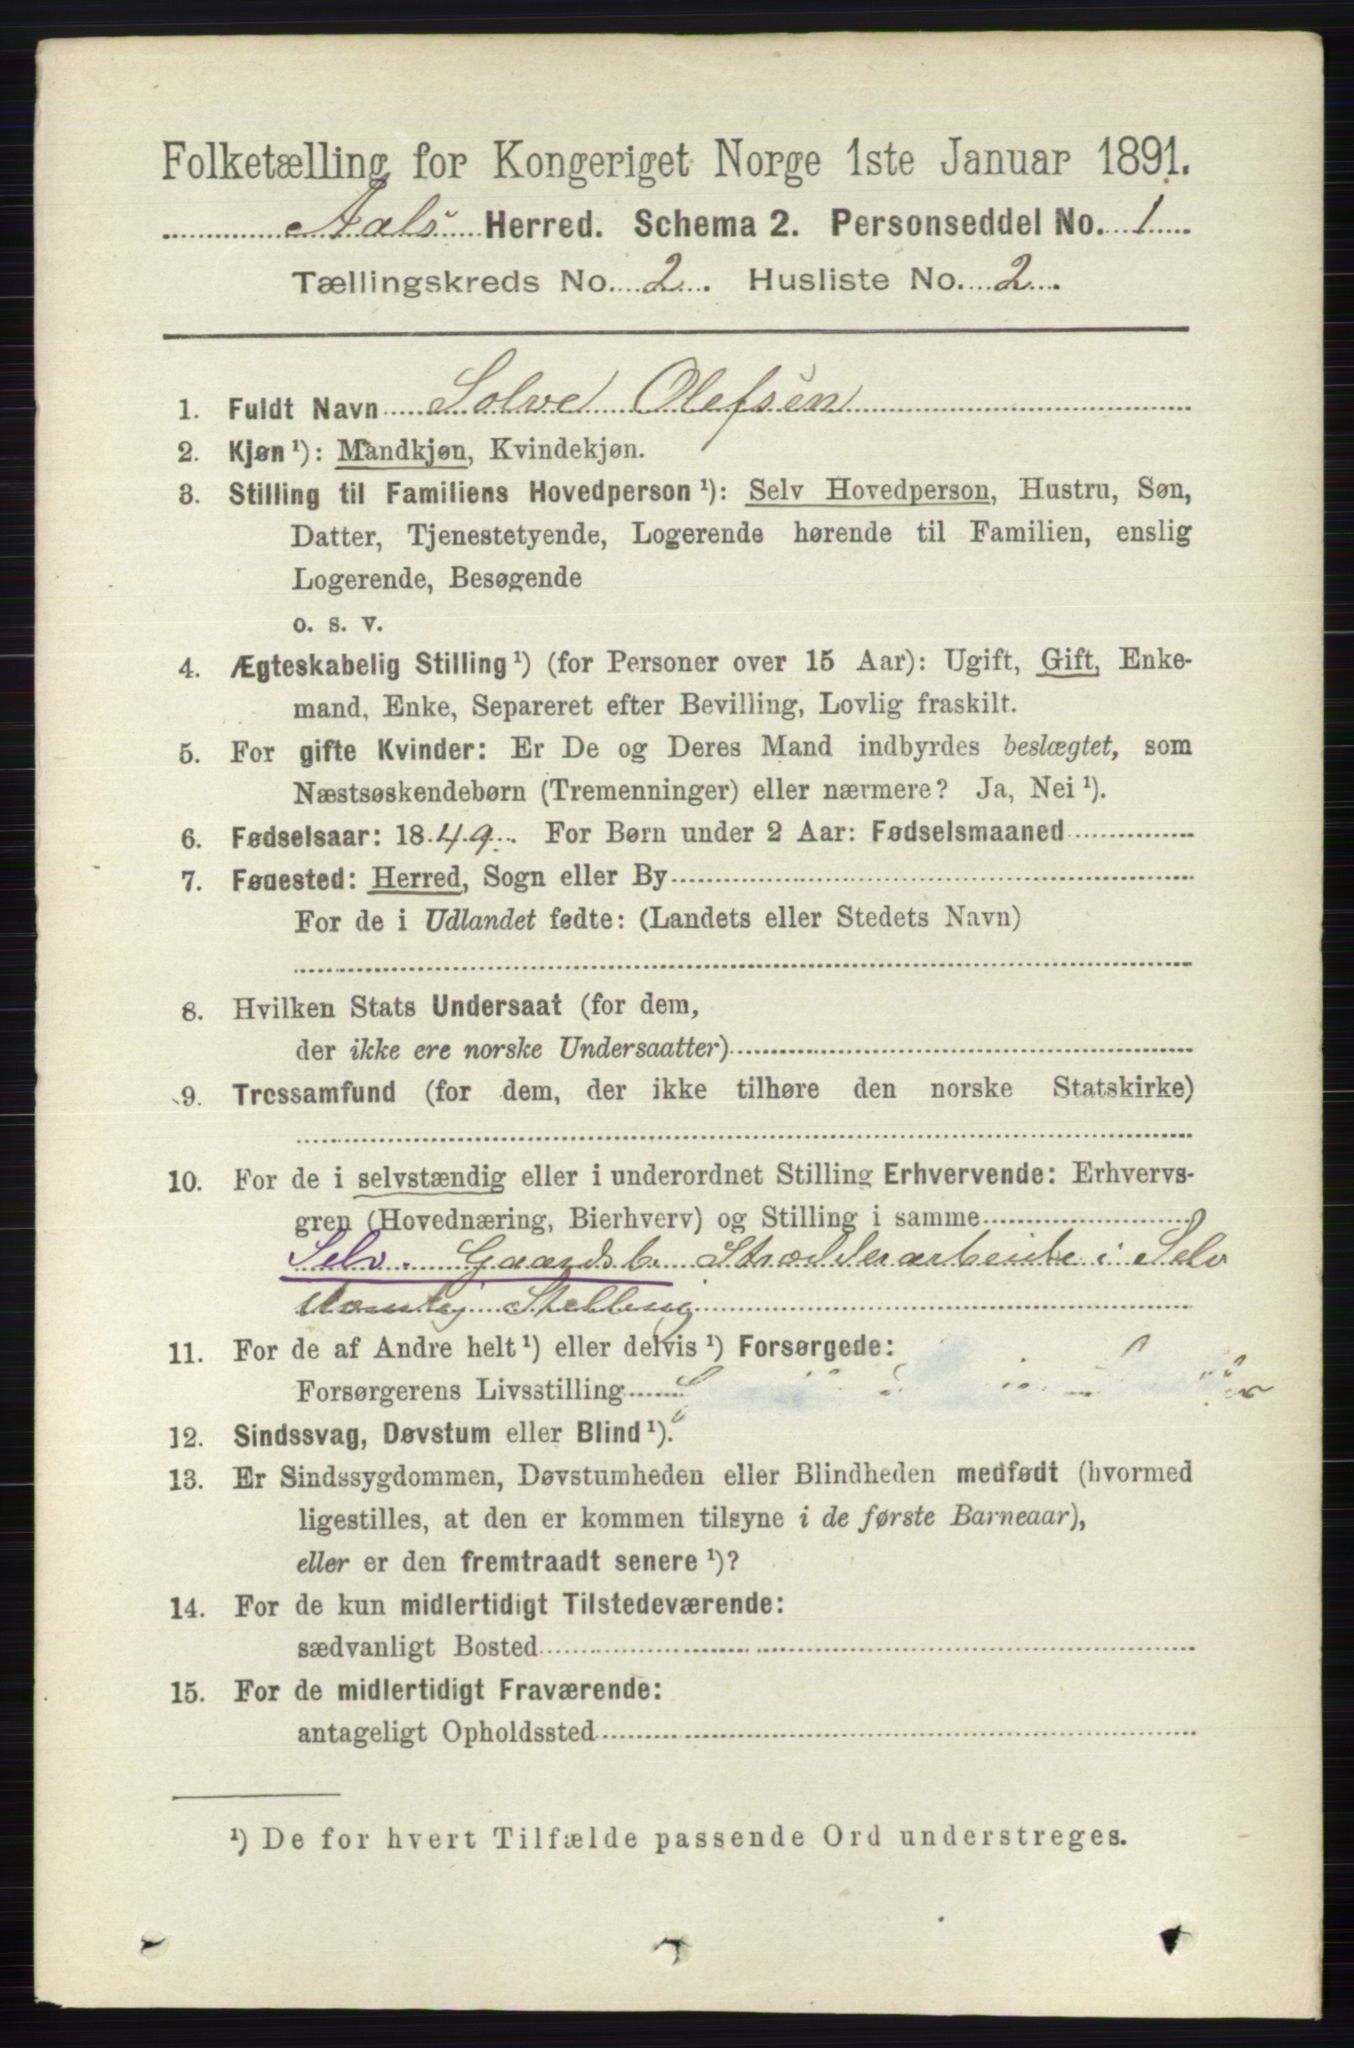 Folketælling for Kongeriget Norge 1ste Januar 1891.
Aals Herred. Schema 2. Personseddel No. 1
Tællingskreds No. 2. Husliste No. 2.
1. Fuldt Navn Solve Olefsen
2. Kjøn ¹): Mandkjøn, Kvindekjøn.
3. Stilling til Familiens Hovedperson ¹): Selv Hovedperson, Hustru, Søn,
Datter, Tjenestetyende, Logerende hørende til Familien, enslig
Logerende, Besøgende
o. s. v.
4. Ægteskabelig Stilling ¹) (for Personer over 15 Aar): Ugift, Gift, Enke-
mand, Enke, Separeret efter Bevilling, Lovlig fraskilt.
5. For gifte Kvinder: Er De og Deres Mand indbyrdes beslægtet, som
Næstsøskendebørn (Tremenninger) eller nærmere? Ja, Nei ¹).
6. Fødselsaar: 1849. For Børn under 2 Aar: Fødselsmaaned
7. Føuested: Herred, Sogn eller By
For de i Udlandet fødte: (Landets eller Stedets Navn)
8. Hvilken Stats Undersaat (for dem,
der ikke ere norske Undersaatter)
9. Trossamfund (for dem, der ikke tilhøre den norske Statskirke)
10. For de i selvstændig eller i underordnet Stilling Erhvervende: Erhvervs-
gren (Hovednæring, Bierhverv) og Stilling i samme
Selv. Gaardsb. i Selv
Stelling
11. For de af Andre helt ¹) eller delvis ¹) Forsørgede:
Forsørgerens Livsstilling
12. Sindssvag, Døvstum eller Blind ¹).
13. Er Sindssygdommen, Døvstumheden eller Blindheden medfødt (hvormed
ligestilles, at den er kommen tilsyne i de første Barneaar),
eller er den fremtraadt senere ¹)?
14. For de kun midlertidigt Tilstedeværende:
sædvanligt Bosted
15. For de midlertidigt Fraværende:
antageligt Opholdssted
¹) De for hvert Tilfælde passende Ord understreges.